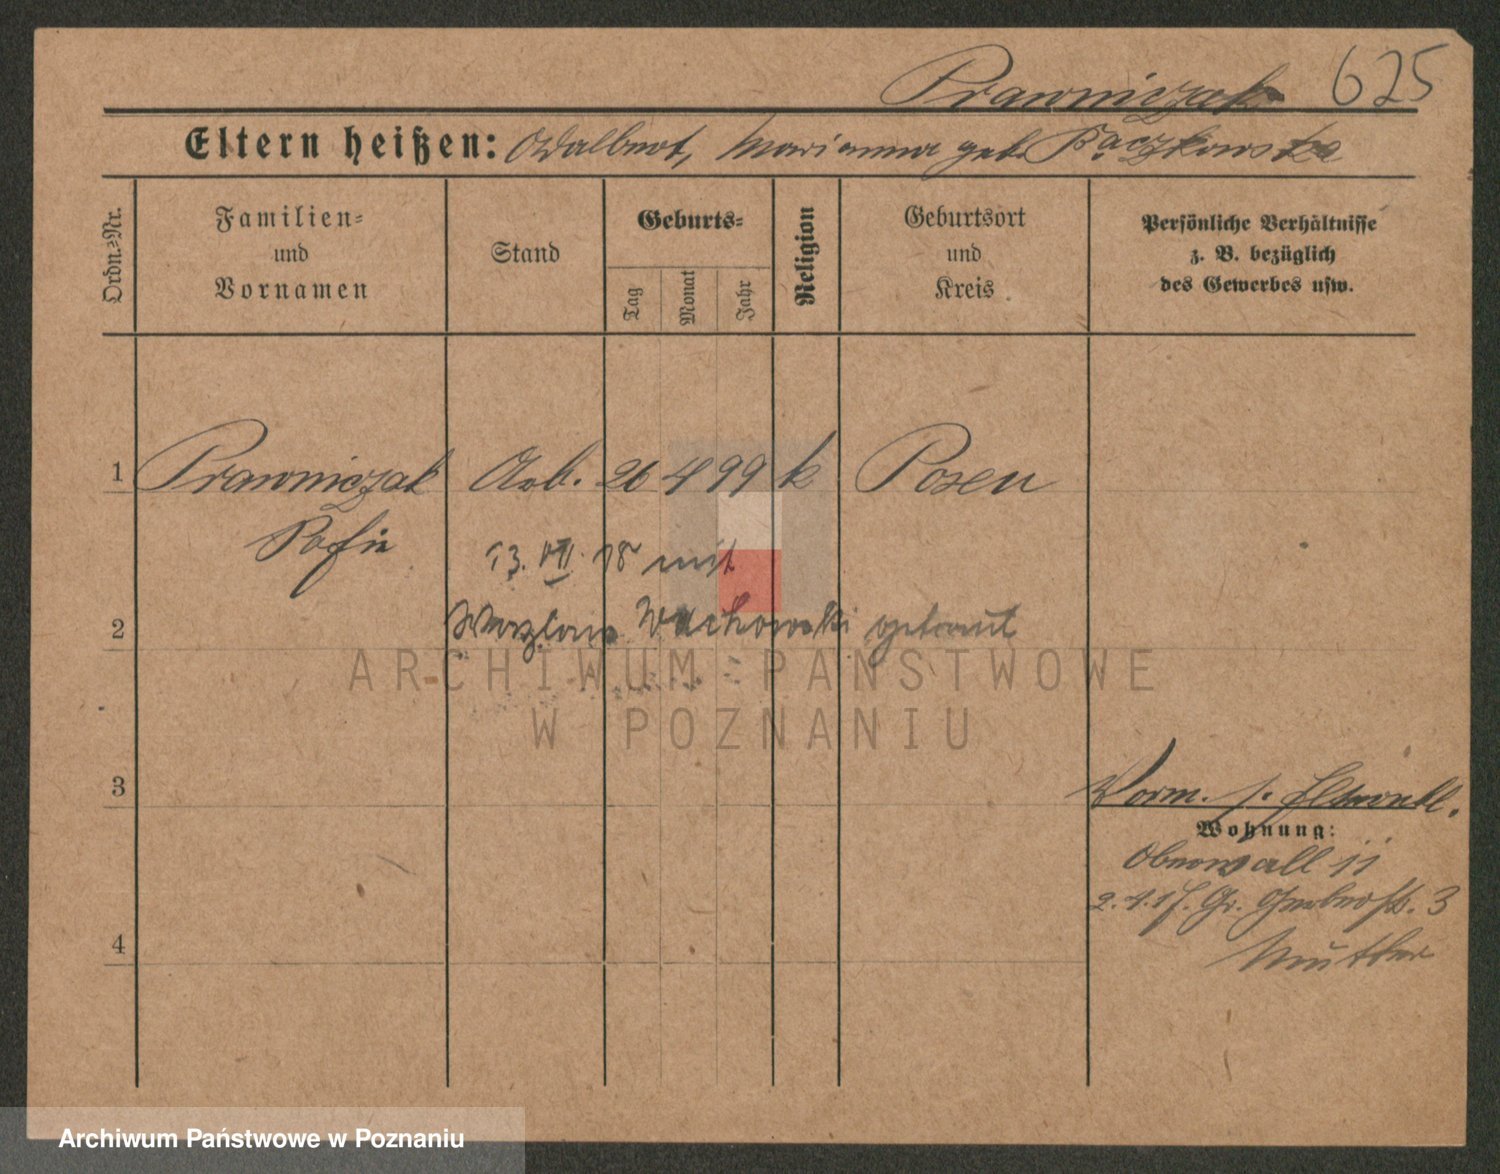 Prawniczak 625
Eltern heißen: Adalbert, Marianna geb. Bączkowska
Ordn.=Nr.
Familien=
und
Vornamen
Stand
Geburts=
Tag
Monat
Jahr
Religion
Geburtsort
und
Kreis
Persönliche Verhältnisse
z. B. bezüglich
des Gewerbes usw.
1 Prawniczak Arb. 26 4 99 k Posen
Sofie
13. VII. 18 mit
2 Wackowski getraut
ARCHIWUM PAŃSTWOWE
W POZNANIU
3 Vorm. s.
Wohnung:
Oberwall 11
2.4.17. Gr. Gerberstr. 3
Mutter
4
Archiwum Państwowe w Poznaniu